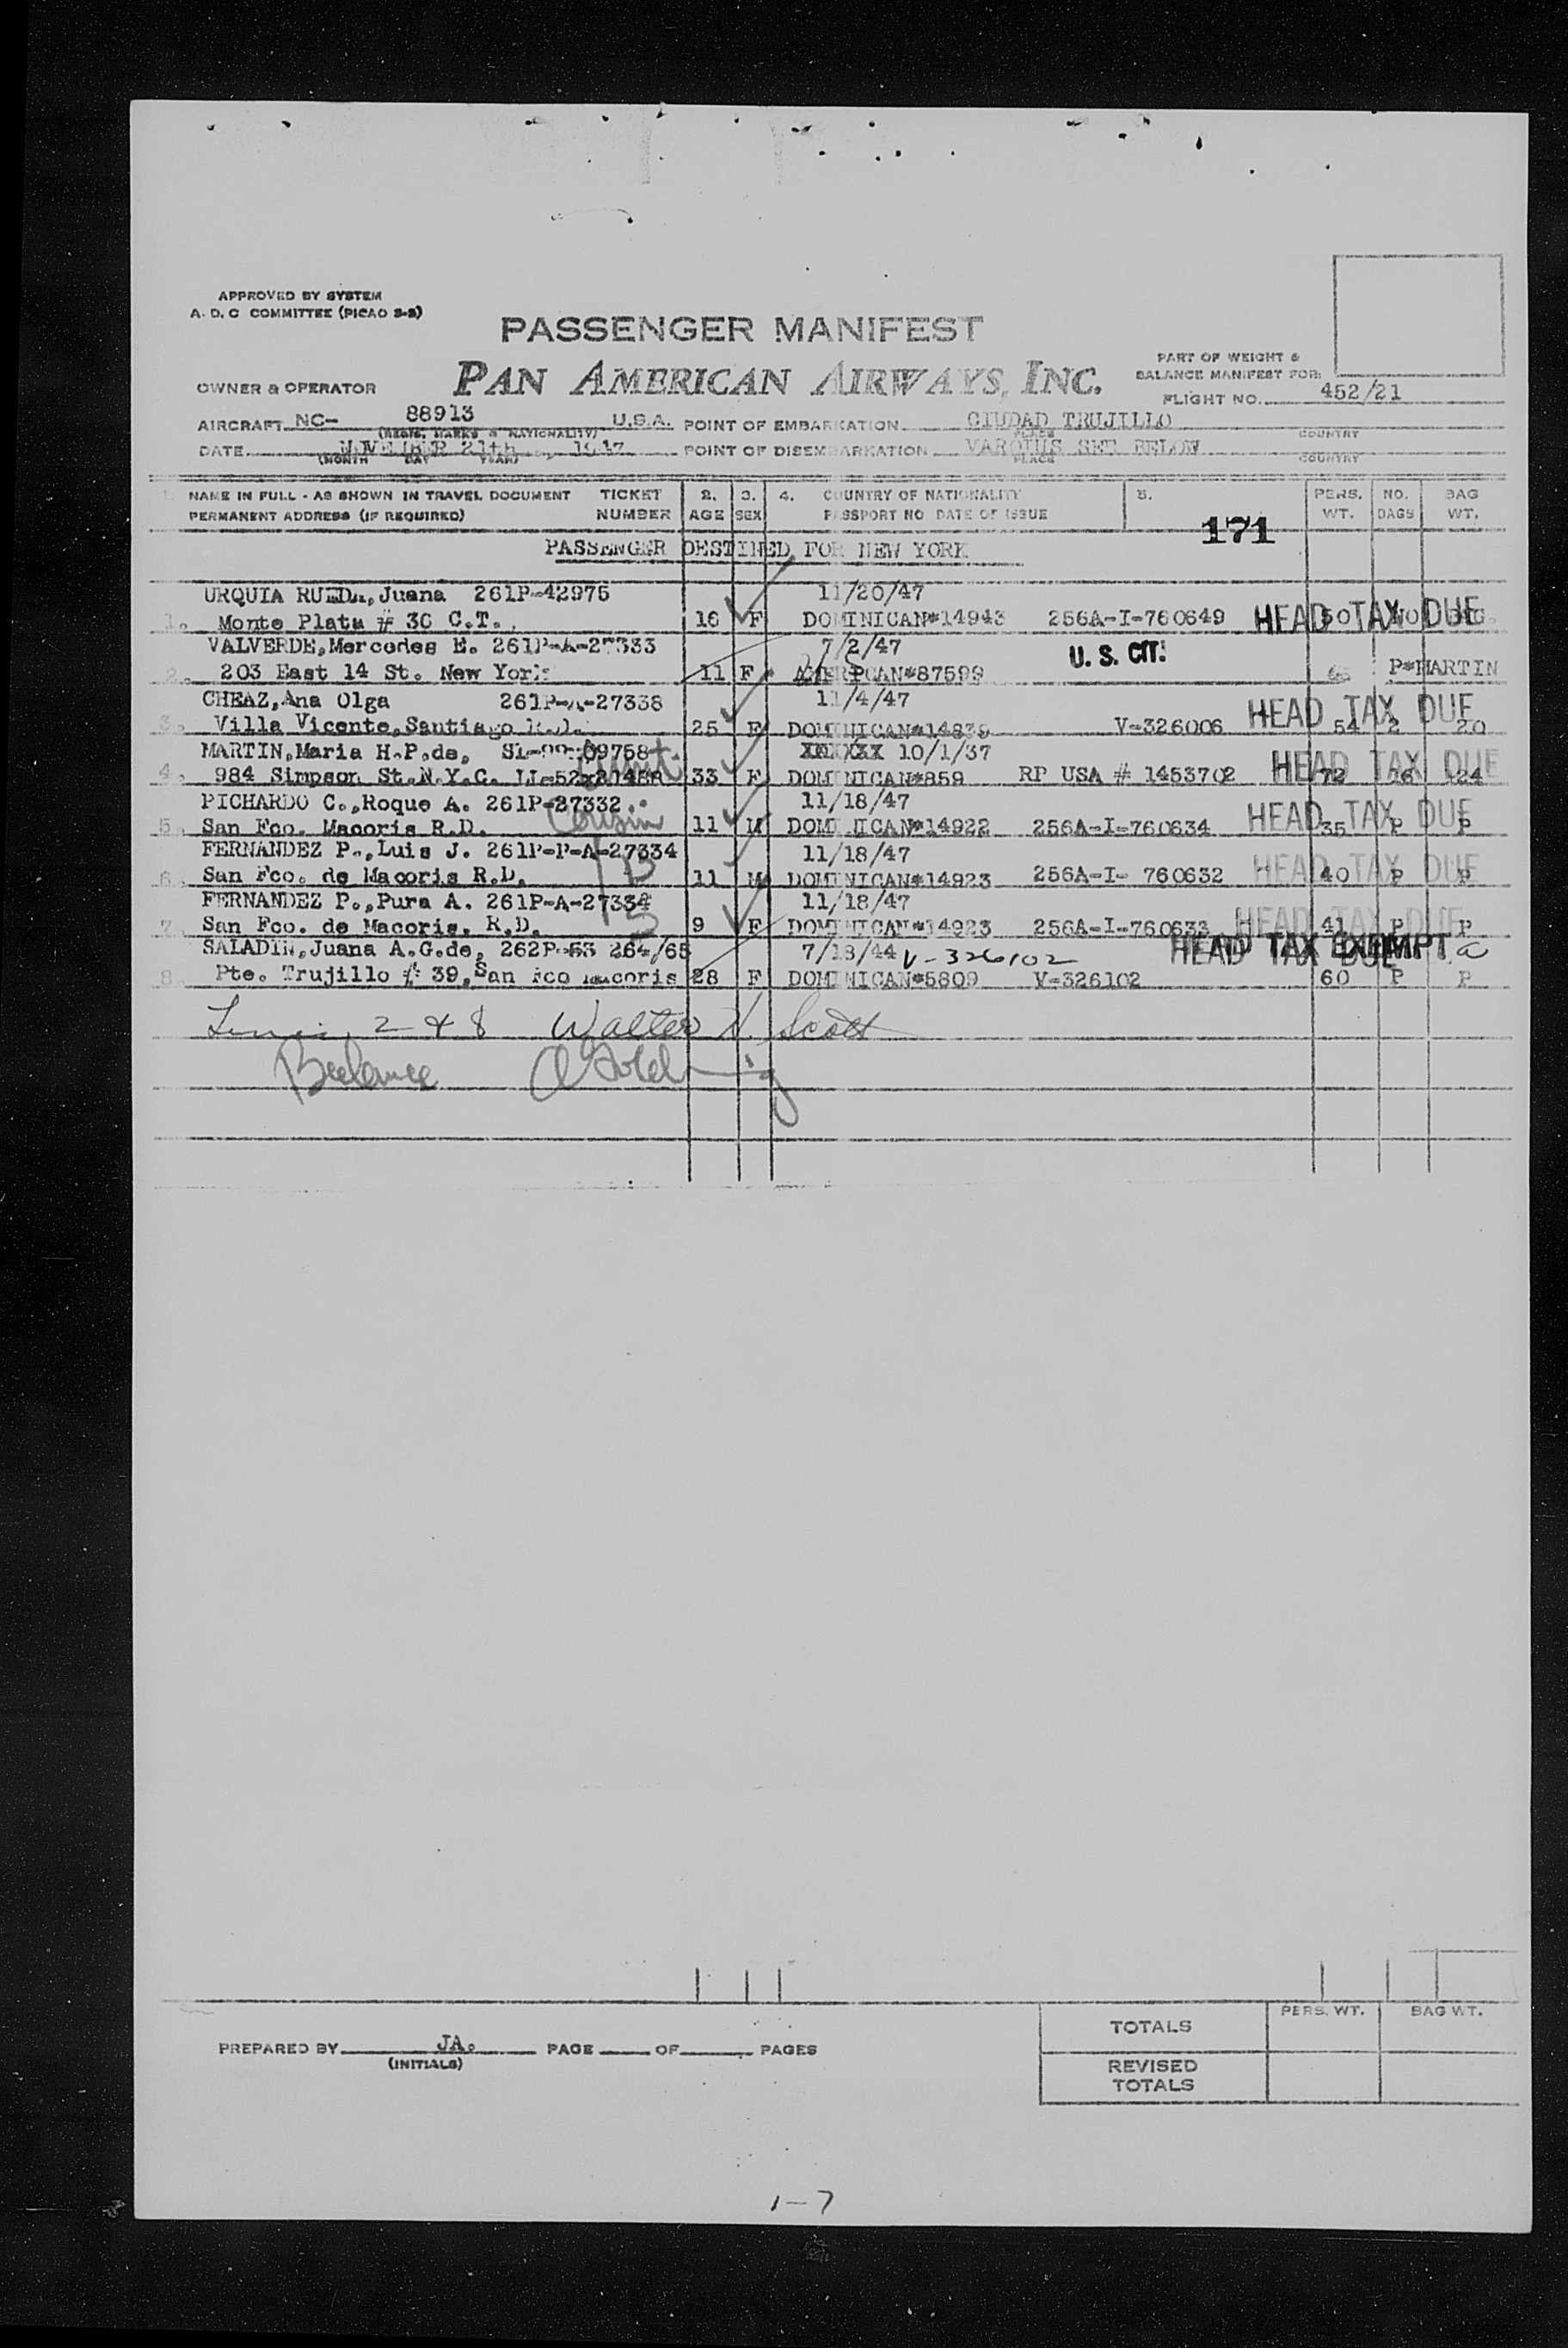 APPROVED BY SYSTEM
A. D. C COMMITTEE (PICAO 2-2)
PASSENGER MANIFEST
OWNER & OPERATOR PAN AMERICAN AIRWAYS, INC.
PART OF WEIGHT &
BALANCE MANIFEST FOR:
FLIGHT NO. 452/21
AIRCRAFT NC- 88913 U.S.A. POINT OF EMBARKATION CIUDAD TRUJILLO
(REGIS. MARKS & NATIONALITY) PLACE COUNTRY
DATE NOVEMBER 21th 1947 POINT OF DISEMBARKATION VAROIUS SEE BELOW
(MONTH DAY YEAR) PLACE COUNTRY
1. NAME IN FULL - AS SHOWN IN TRAVEL DOCUMENT TICKET 2. 3. 4. COUNTRY OF NATIONALITY 5. PERS. NO. BAG
PERMANENT ADDRESS (IF REQUIRED) NUMBER AGE SEX PASSPORT NO DATE OF ISSUE WT. BAGS WT.
171
PASSENGER DESTINED FOR NEW YORK
URQUIA RUEDA, Juana 261P-42975 11/20/47
1. Monte Plata # 30 C.T. 16 F DOMINICAN*14943 256A-I-760649 HEAD TAX DUE 50 NO
VALVERDE, Mercedes E. 261P-A-27333 7/2/47 U. S. CIT.
2. 203 East 14 St. New York 11 F AMERICAN*87599 P*MARTIN
CHEAZ, Ana Olga 261P-A-27338 11/4/47
3. Villa Vicente, Santiago R.D. 25 F DOMINICAN*14839 V-326006 HEAD TAX DUE 54 2 20
MARTIN, Maria H.P.de, 09758 XXXXXX 10/1/37
4. 984 Simpson St. N.Y.C. 33 F DOMINICAN*859 RP USA # 1453702 HEAD TAX DUE 72 24
PICHARDO C., Roque A. 261P-27332 11/18/47
5. San Fco. Macoris R.D. Cousin 11 M DOMINICAN*14922 256A-I-760634 HEAD TAX DUE 35 P P
FERNANDEZ P., Luis J. 261P-P-A-27334 11/18/47
6. San Fco. de Macoris R.D. 11 M DOMINICAN*14923 256A-I- 760632 HEAD TAX DUE 40 P P
FERNANDEZ P., Pura A. 261P-A-27334 11/18/47
7. San Fco. de Macoris, R.D. 9 F DOMINICAN*14923 256A-I-760633 HEAD TAX DUE 41 P P
SALADIN, Juana A.G.de, 262P-53 264/65 7/18/44 V-326102 HEAD TAX EXEMPT
8. Pte. Trujillo # 39, San Fco Macoris 28 F DOMINICAN*5809 V-326102 60 P P
2 & 8 Walter Scott
Balance
PREPARED BY JA. PAGE OF PAGES
(INITIALS)
PERS. WT. BAG WT.
TOTALS
REVISED
TOTALS
1-7